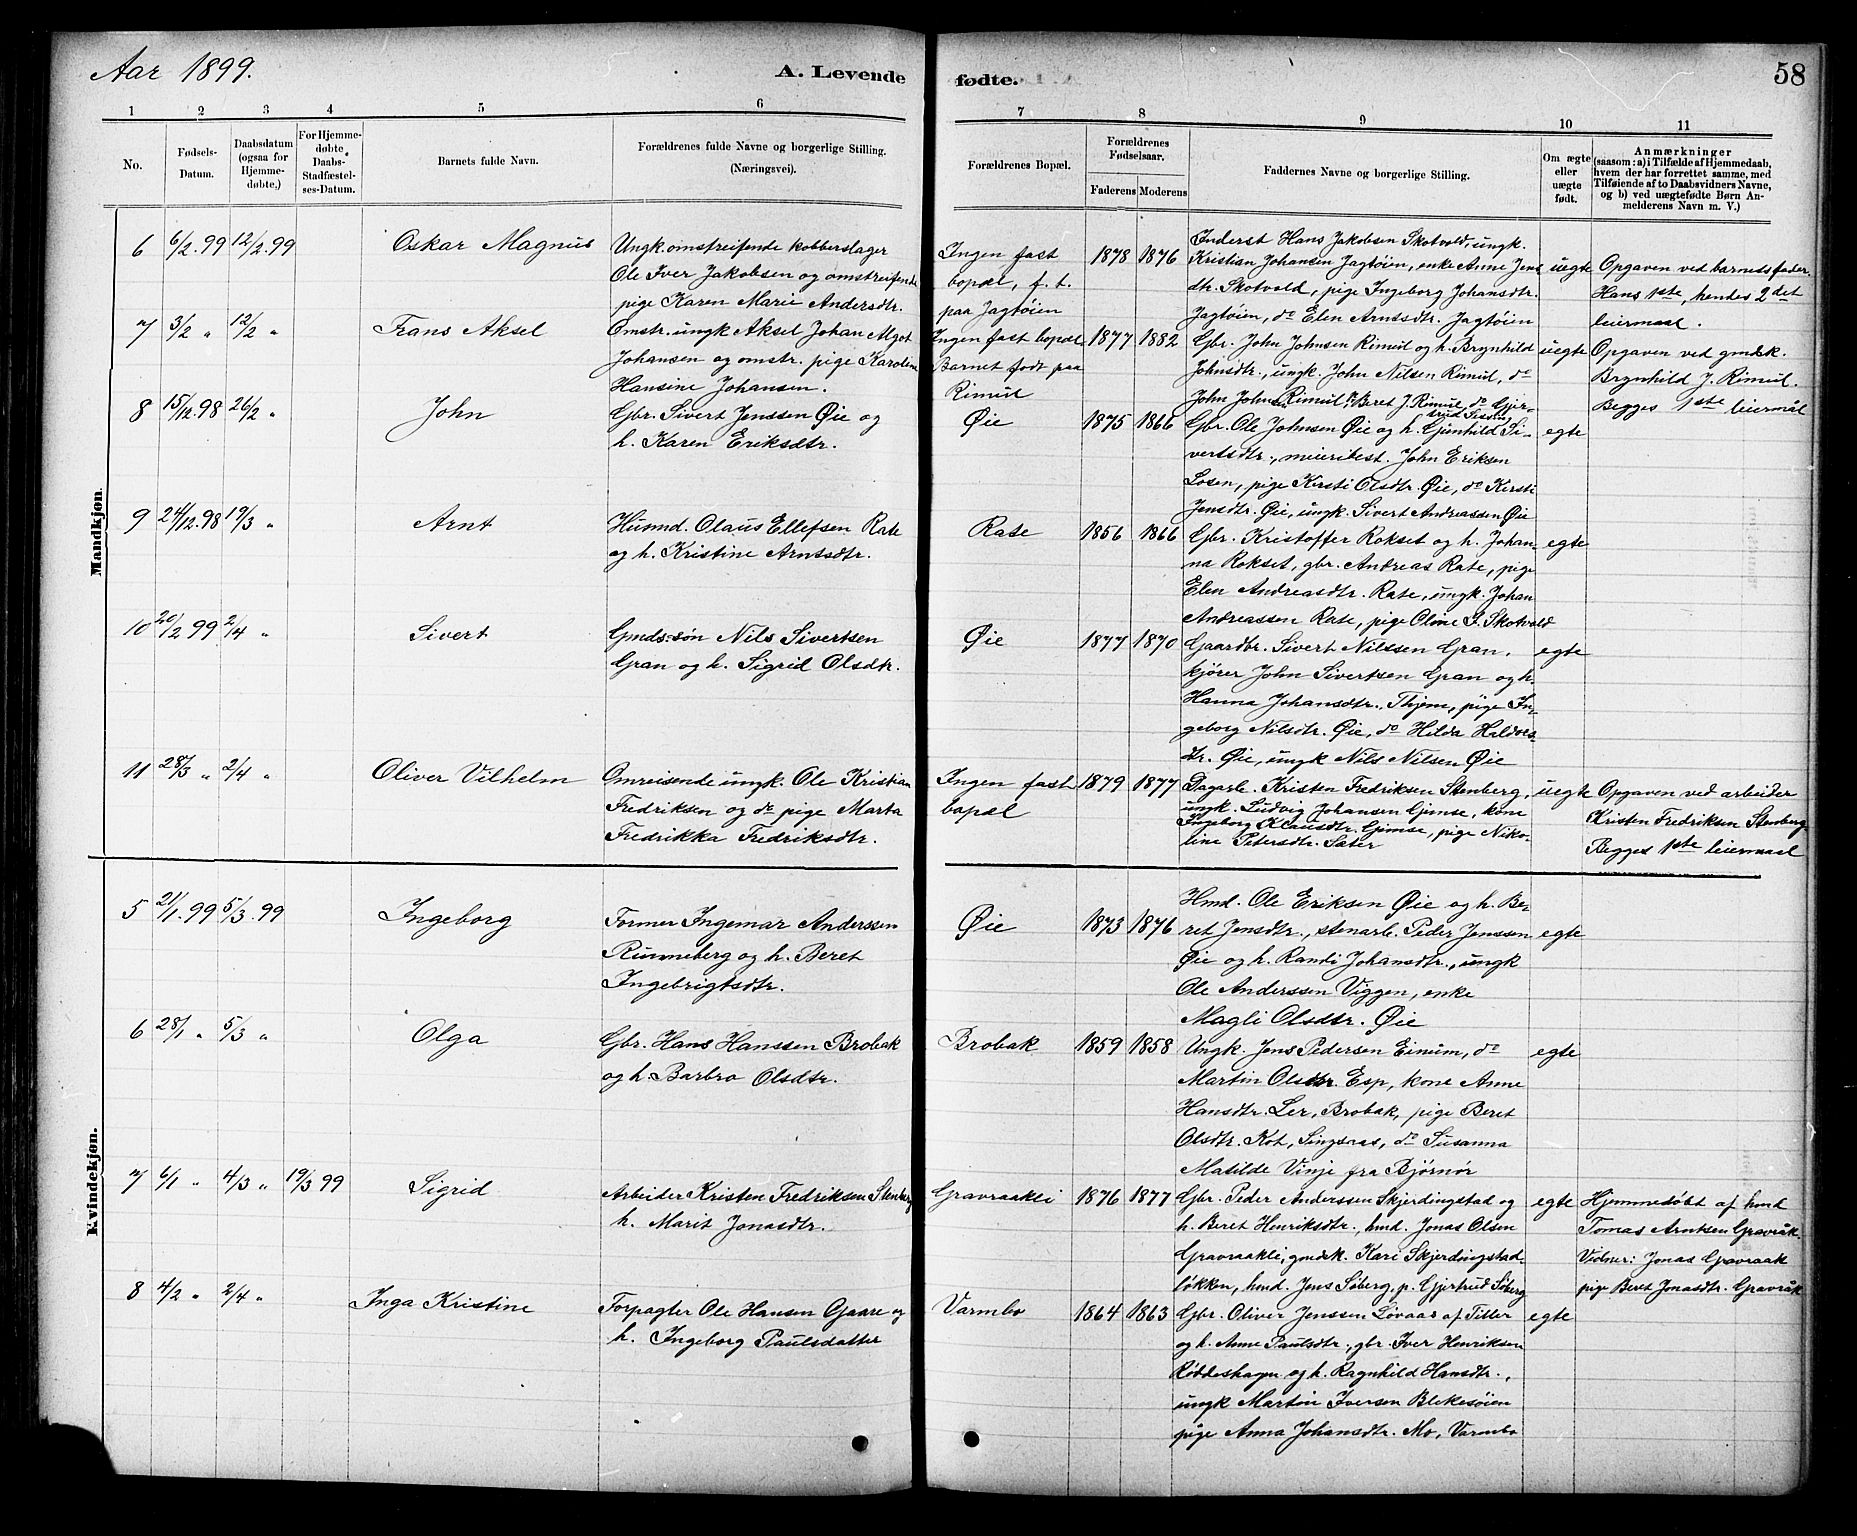 Aar 1899.
A. Levende
fødte.
58
1 2 3 4 5 6
7 8 9 10 11
No.
Fødsels-
Datum.
Daabsdatum
(ogsaa for
Hjemme-
døbte.)
For Hjemme-
døbte
Daabs-
Stadfæstel-
ses-Datum.
Barnets fulde Navn.
Forældrenes fulde Navne og borgerlige Stilling.
(Næringsvei).
Forældrenes Bopæl.
Forældrenes
Fødselsaar.
Faderens Moderens
Faddernes Navne og borgerlige Stilling.
Om ægte
eller
uægte
født.
Anmærkninger
(saasom: a) i Tilfælde af Hjemmedaab,
hvem der har forrettet samme, med
Tilføiende af to Daabsvidners Navne,
og b) ved uægtefødte Børn An-
melderens Navn m. V.)
Mandkjøn.
6 6/2.99 12/2.99
Oskar Magnus
Ungk. omstreifende kobberslager
Ole Iver Jakobsen og omstreifende
pige Karen Marie Andersdtr.
Ingen fast
bopæl, f. t.
paa Jagtøien
1878 1876
Inderst Hans Jakobsen Skotvold, ungk.
Kristian Johansen Jagtøien, enke Anne Jens
dtr. Skotvold, pige Ingeborg Johansdtr.
Jagtøien, do Elen Arntsdtr. Jagtøien
uegte
Opgaven ved barnets fader.
Hans 1ste, hendes 2det
leiermaal.
7 3/2 „ 12/2 „
Frans Aksel
Omstr. ungk Aksel Johan Algot
Johansen og omstr. pige Karoline
Hansine Johansen.
Ingen fast bopæl
Barnet født paa
Rimul
1877 1882
Gbr. John Johnsen Rimul og h. Brynhild
Johnsdtr., ungk. John Nilsen Rimul, do
John Johnsen Rimul, p. Beret J. Rimul, do Gjer-
trud Tesding
uegte
Opgaven ved gmdsk.
Brynhild J. Rimul.
Begges 1ste leiermål
8 15/12.98 26/2 „
John
Gbr. Sivert Jenssen Øie og
h. Karen Eriksdtr.
Øie
1875 1866
Gbr. Ole Johnsen Øie og h. Gunhild Si-
vertsdtr., meieribest. John Eriksen
Losen, pige Kirsti Olsdtr. Øie, do Kirsti
Jensdtr. Øie, ungk. Sivert Andreassen Øie
egte
9 24/12.98 19/3 „
Arnt
Husmd. Olaus Ellefsen Rate
og h. Kristine Arntsdtr.
Rate
1856 1866
Gbr. Kristoffer Rokset og h. Johan-
na Rokset, gbr. Andreas Rate, pige
Elen Andreasdtr. Rate, ungk. Johan
Andreassen Rate, pige Oline J. Skotvold
egte
10 20/2 99 2/4 „
Sivert
Gmds-søn Nils Sivertsen
Gran og h. Sigrid Olsdtr.
Øie
1877 1870
Gaardbr. Sivert Nilssen Gran,
kjører John Sivertsen Gran og h.
Hanna Johansdtr., Thjem, pige In-
geborg Nilsdtr. Øie, do Hilda Haldors-
dtr. Øie, ungk Nils Nilsen Øie
egte
11 28/3 „ 2/4 „
Oliver Vilhelm
Omreisende ungk. Ole Kristian
Fredriksen og do pige Marta
Fredrikka Fredriksdtr.
Ingen fast
bopæl
1879 1877
Dagarb. Kristen Fredriksen Stenberg,
ungk. Ludvig Johansen Gimse, kone
Ingeborg Klausdtr. Gimse, pige Niko-
line Petersdtr. Sæter
uegte
Opgaven ved arbeider
Kristen Fredriksen Stenberg
Begges 1ste leiermaal
Kvindekjøn.
5 21/1.99 5/3.99
Ingeborg
Former Ingemar Anderssen
Runneberg og h. Beret
Ingebrigtsdtr.
Øie
1873 1876
Hmd. Ole Eriksen Øie og h. Be-
ret Jensdtr., stenarb. Peder Jenssen
Øie og h. Randi Johansdtr., ungk
Ole Anderssen Viggen, enke
Magli Olsdtr. Øie
egte
6 28/1 „ 5/3 „
Olga
Gbr. Hans Hanssen Brobak
og h. Barbro Olsdtr.
Brobak
1859 1858
Ungk. Jens Pedersen Einum, do
Martin Olsdtr. Esp, kone Anne
Hansdtr. Ler, Brobak, pige Beret
Olsdtr. Kot, Singsaas, do Susanna
Matilde Vinje fra Bjørnør
egte
7 6/1 „ 4/3 „ 19/3 99
Sigrid
Arbeider Kristen Fredriksen Stenberg
h. Marit Jonasdtr.
Gravraakli
1876 1877
Gbr. Peder Anderssen Skjerdingstad og
h. Beret Henriksdtr., hmd. Jonas Olsen
Gravraakli, gmdsk. Kari Skjerdingstad-
løkken, hmd. Jens Søberg, p. Gjertrud Søberg
egte
Hjemmedøbt af hmd
Tomas Arntsen Gravråk
Vidner: Jonas Gravraak
pige Beret Jonasdtr. Gravråk
8 4/2 „ 2/4 „
Inga Kristine
Forpagter Ole Hansen Gaare og
h. Ingeborg Paulsdatter
Varmbo
1864 1863
Gbr. Oliver Jenssen Løvaas af Tiller
og h. Anne Paulsdtr., gbr. Iver Henriksen
Røddeshagen og h. Ragnhild Hansdtr.,
ungk Martin Iversen Blekesøien
pige Anna Johansdtr. Mo, Varmbo
egte